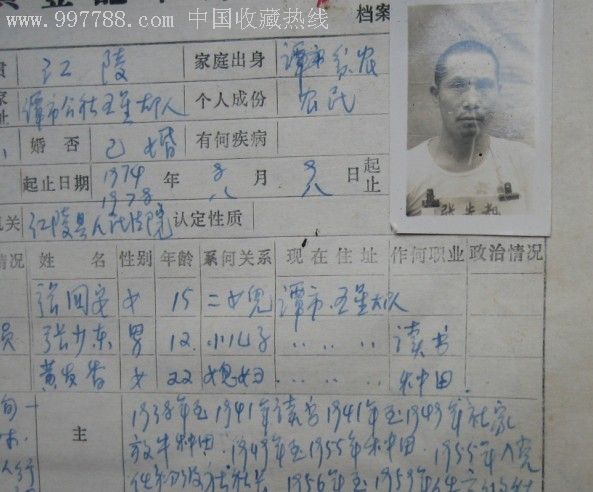 www.997788.com 中国收藏热线
登记
档案
江陵 家庭出身 谭市贫农
谭市公社五星大队 个人成份 农民
婚否 已婚 有何疾病
起止日期 1974年 8月 8日起
1978 八 八 止
机关 江陵县人民法院 认定性质
情况 姓名 性别 年龄 系何关系 现在住址 作何职业 政治情况
女 15 二女儿 谭市五星大队
员 张少东 男 12 小儿子 〃 〃 〃 〃 读书
黄发香 女 22 媳妇 〃 〃 〃 〃 种田
主 1938年至1941年读书1941年至1949年在家
放牛种田.1949年至1955年种田.1955年入党
任初级社社长 1956年至1959年